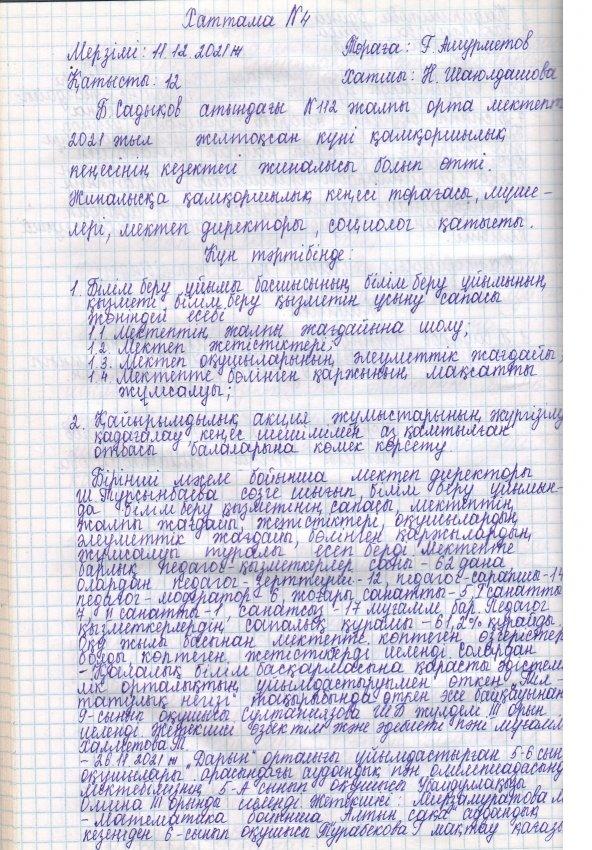 Хаттама №4
Мерзімі: 11.12.2021ж Төраға: Г. Ашурметов
Қатысты: 12 Хатшы: Н. Шаюлдашова
Б. Садықов атындағы №112 жалпы орта мектепте
2021 жыл желтоқсан күні қамқоршылық
кеңесінің кезекті жиналысы болып өтті.
Жиналысқа қамқоршылық кеңесі төрағасы, мүше-
лері, мектеп директоры, социолог қатысты.
Күн тәртібінде:
1. Білім беру ұйымы басшысының білім беру ұйымының
қызметі білім беру қызметін ұсыну сапасы
жөніндегі есебі
1.1. Мектептің жалпы жағдайына шолу;
1.2. Мектеп жетістіктері;
1.3. Мектеп оқушыларының әлеуметтік жағдайы;
1.4. Мектепте бөлінген қаржының мақсатты
жұмсалуы;
2. Қайырымдылық акция жұмыстарының жүргізілу
қадағалау кеңес шешімімен аз қамтылған
отбасы балаларына көмек көрсету.
Бірінші мәселе бойынша мектеп директоры
Ш Турсынбаева сөзге шығып, білім беру ұйымын-
да білім беру қызметінің сапасы, мектептің
жалпы жағдайы, жетістіктері, оқушылардың
әлеуметтік жағдайы, бөлінген қаржылардың
жұмсалуы туралы есеп берді. Мектепте
барлық педагог-қызметкерлер саны - 62 дана
олардан педагог-зерттеуші - 12, педагог-сарапшы - 14
педагог-модератор - 6, жоғары санатты - 5, I санатты
7, II санатты - 1, санатсыз - 17 мұғалім бар. Педагог
қызметкерлердің сапалық құрамы - 61,2% құрайды
Оқу жылы басынан мектепте көптеген өзгерістер
болды, көптеген, жетістікерді иеленді солардан
- Қалалық білім басқармасына қарасты әдістеме
лік орталықтың ұйымдастыруымен өткен „Тіл-
татулық негізі" тақырыбында өткен эссе байқауынан
9-сынып оқушысы Султаниязова Ш.Б жүлделі III орын
иеленді. Жетекшісі өзбек тілі және әдебиеті пәні мұғалімі
Халметова Т.
- 26.11.2021 ж „Дарын" орталығы ұйымдастырған 5-6 сынып
оқушылары арасындағы аудандық пән олимпиадасында
мектебіміздің 5-А сынып оқушысы Убайдулақызы
Омина III орынды иеленді. Жетекшісі: Мирзамуратова М
- Математика бойынша „Алтын сақа" аудандық
кезеңнен 6-сынып оқушысы Турабекова Г мақтау қағазы